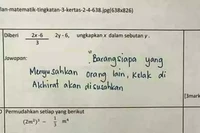 lan-matematik-tingkatan-3-kertas-2-4-638.jpg(638x826)
Diberi 2x-6/3 2y - 6, ungkapkan x dalam sebutan y.
Jawapan:
"Barangsiapa yang
Menyusahkan orang lain, Kelak di
Akhirat akan disusahkan
[3mark
Permudahkan setiap yang berikut